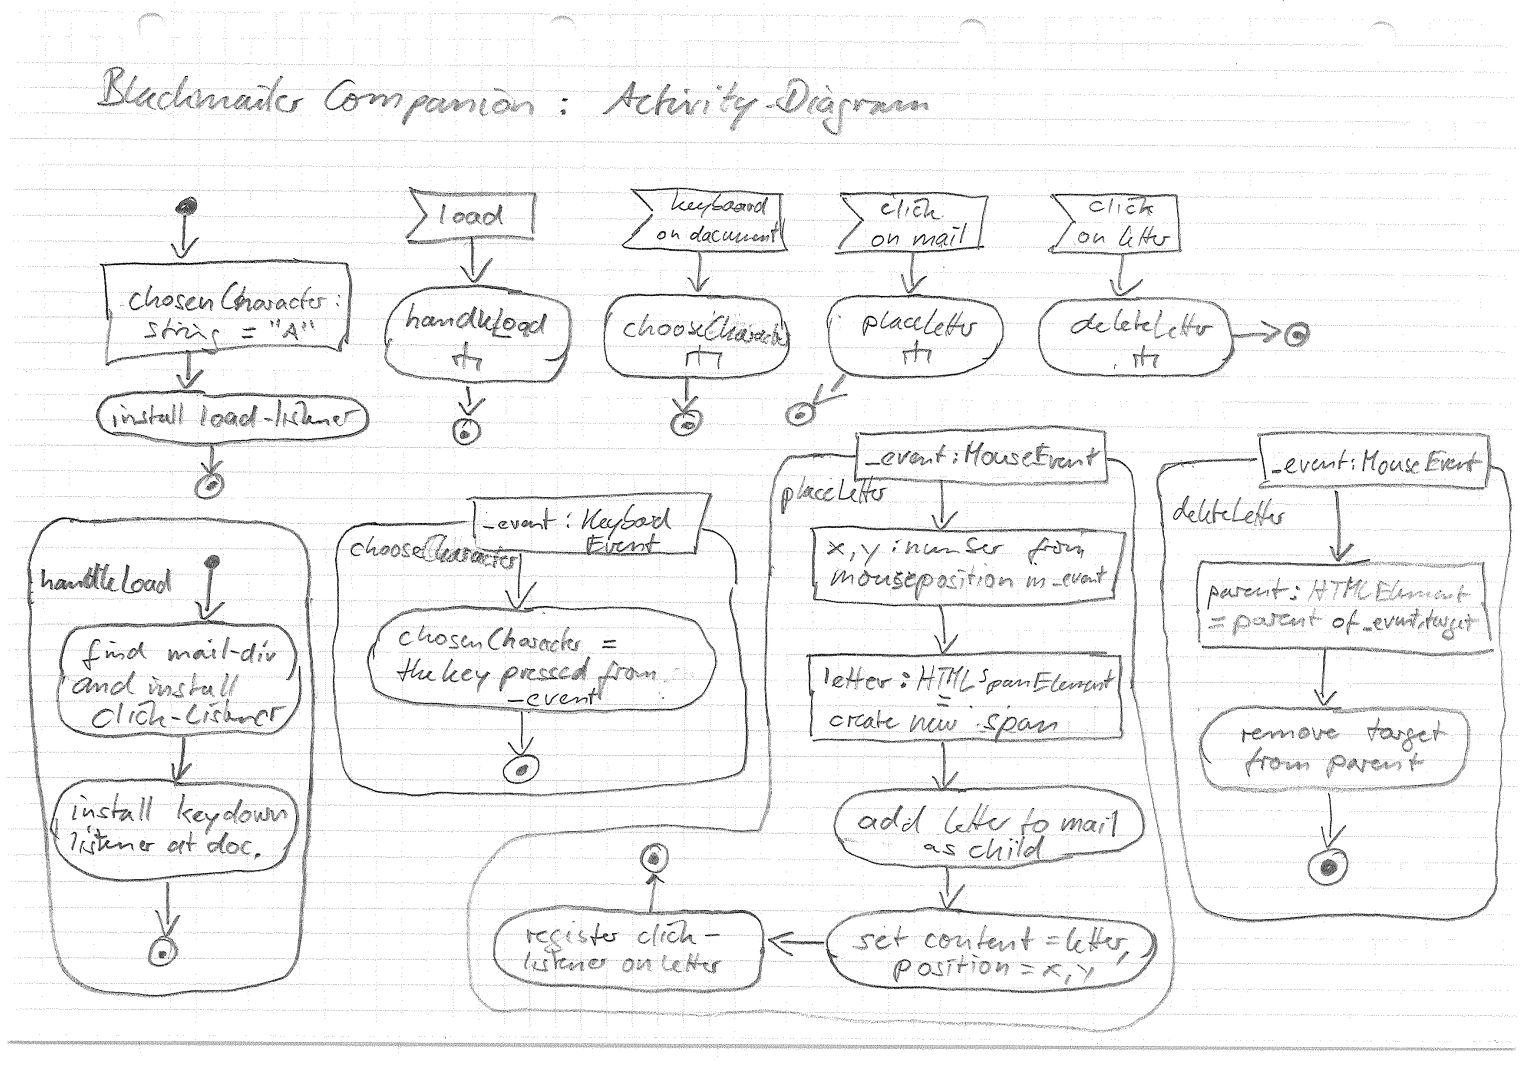 Blackmailer Companion : Activity-Diagram
chosenCharacter:
string = "A"
install load-listener
load
handleLoad
keyboard
on document
chooseCharacter
click
on mail
placeLetter
click
on letter
deleteLetter
handleLoad
find mail-div
and install
click-listener
install keydown
listener at doc.
_event : Keyboard
Event
chooseCharacter
chosenCharacter =
the key pressed from
_event
_event : MouseEvent
placeLetter
x, y : number from
mouseposition in _event
letter : HTMLSpanElement
=
create new span
add letter to mail
as child
set content = letter,
position = x, y
register click-
listener on letter
_event : MouseEvent
deleteLetter
parent : HTMLElement
= parent of _event.target
remove target
from parent